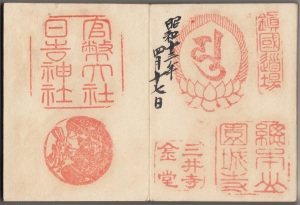 鎮國道場
総本山
園城寺
三井寺
金堂
昭和十三年
四月十七日
官幣大社
日吉神社